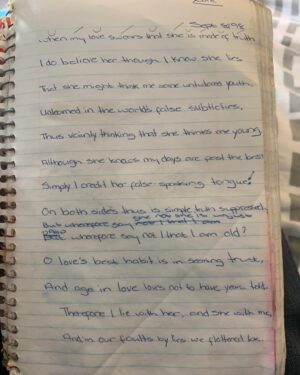 Sept 8/98
When my love swears that she is made of truth
I do believe her though I know she lies
That she might think me some untutored youth,
Unlearned in the world's false subtleties,
Thus vainly thinking that she thinks me young
Although she knows my days are past the best
Simply I credit her false speaking tongue!
On both sides thus is simple truth suppressed,
But wherefore say she not she is unjust
wherefore say not I that I am old?
O love's best habit is in seeming trust,
And age in love loves not to have years told.
Therefore I lie with her, and she with me,
And in our faults by lies we flattered be.